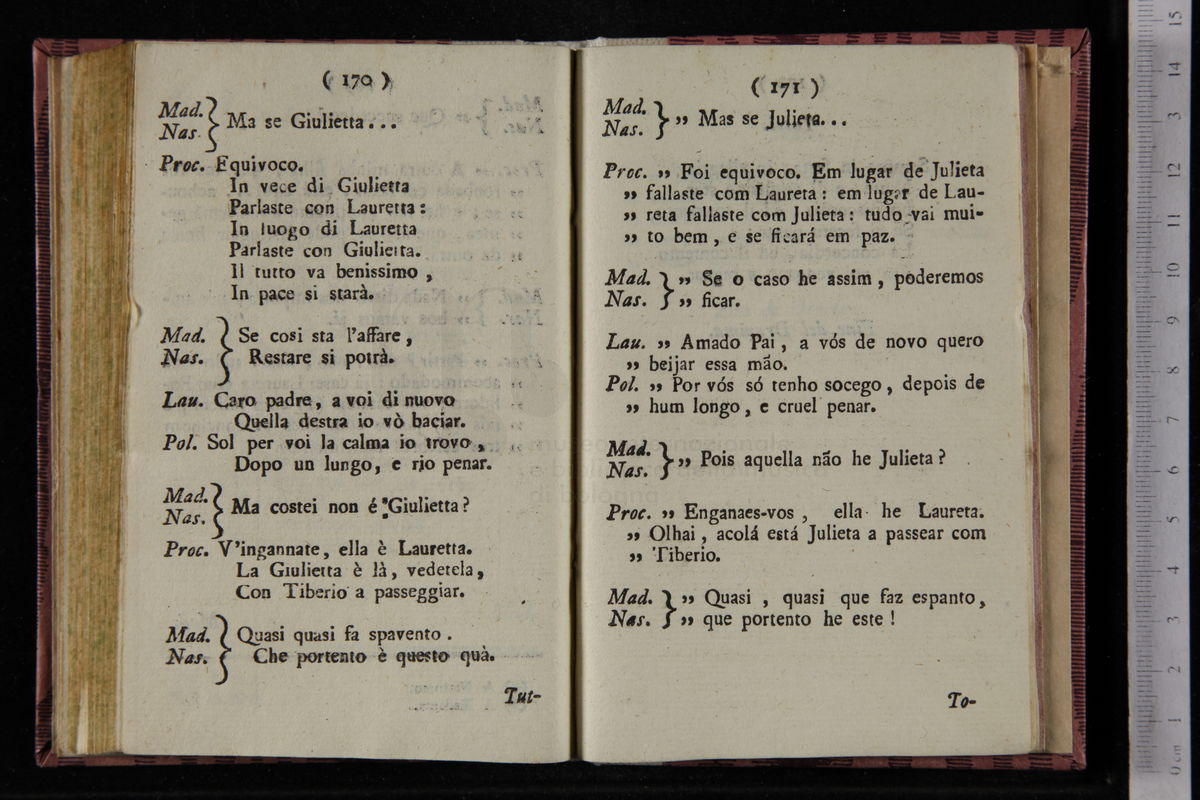 ( 170 )
Mad.
Nas. } Ma se Giulietta...
Proc. Equivoco.
In vece di Giulietta
Parlaste con Lauretta:
In luogo di Lauretta
Parlaste con Giulietta.
Il tutto va benissimo ,
In pace si starà.
Mad. } Se cosi sta l'affare ,
Nas. } Restare si potrà.
Lau. Caro padre, a voi di nuovo
Quella destra io vò baciar.
Pol. Sol per voi la calma io trovo ,
Dopo un lungo, e rio penar.
Mad.
Nas. } Ma costei non é Giulietta?
Proc. V'ingannate, ella è Lauretta.
La Giulietta è là, vedetela,
Con Tiberio a passeggiar.
Mad. } Quasi quasi fa spavento .
Nas. } Che portento è questo quà.
Tut-
( 171 )
Mad.
Nas. } „ Mas se Julieta...
Proc. „ Foi equivoco. Em lugar de Julieta
„ fallaste com Laureta : em lugar de Lau-
„ reta fallaste com Julieta : tudo vai mui-
„ to bem , e se ficará em paz.
Mad. } „ Se o caso he assim , poderemos
Nas. } „ ficar.
Lau. „ Amado Pai , a vós de novo quero
„ beijar essa mão.
Pol. „ Por vós só tenho socego , depois de
„ hum longo , e cruel penar.
Mad.
Nas. } „ Pois aquella não he Julieta ?
Proc. „ Enganaes-vos , ella he Laureta.
„ Olhai , acolá está Julieta a passear com
„ Tiberio.
Mad. } „ Quasi , quasi que faz espanto,
Nas. } „ que portento he este !
To-
0 cm 1 2 3 4 5 6 7 8 9 10 11 12 13 14 15